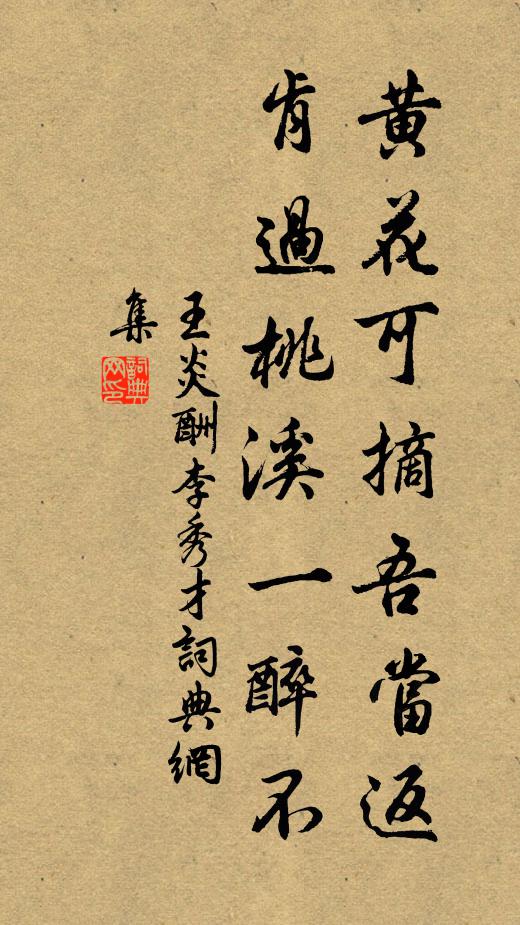 黄花可摘吾當返
肯過桃溪一醉不
王炎酬李秀才詞典網
集
詞典
网印